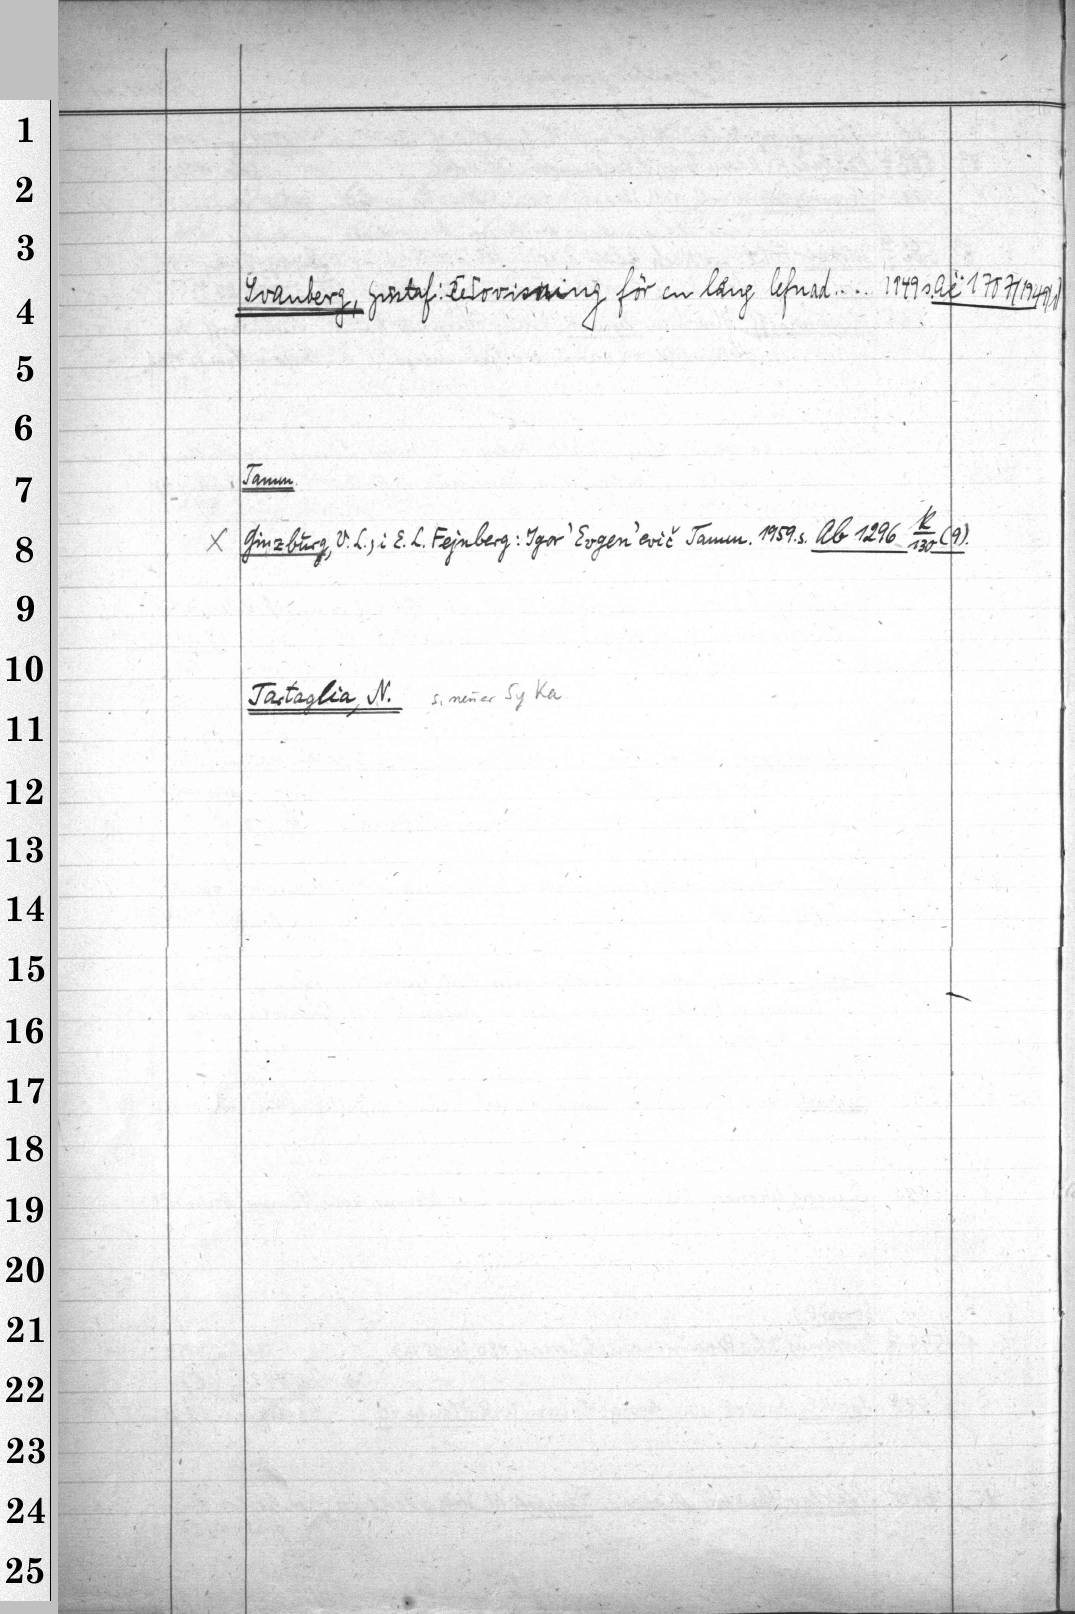 1
2
3
4 Svanberg, Gustaf: Redovisning för en lång lefnad.... 1949 s. Ac 1707/1949
5
6
7 Tamm.
8 X Ginzburg, V. L., i E. L. Fejnberg: Igor' Evgen'evič Tamm. 1959. s. Ab 1296 K/130 (9).
9
10 Tartaglia, N. s. neuer Sy Ka
11
12
13
14
15
16
17
18
19
20
21
22
23
24
25